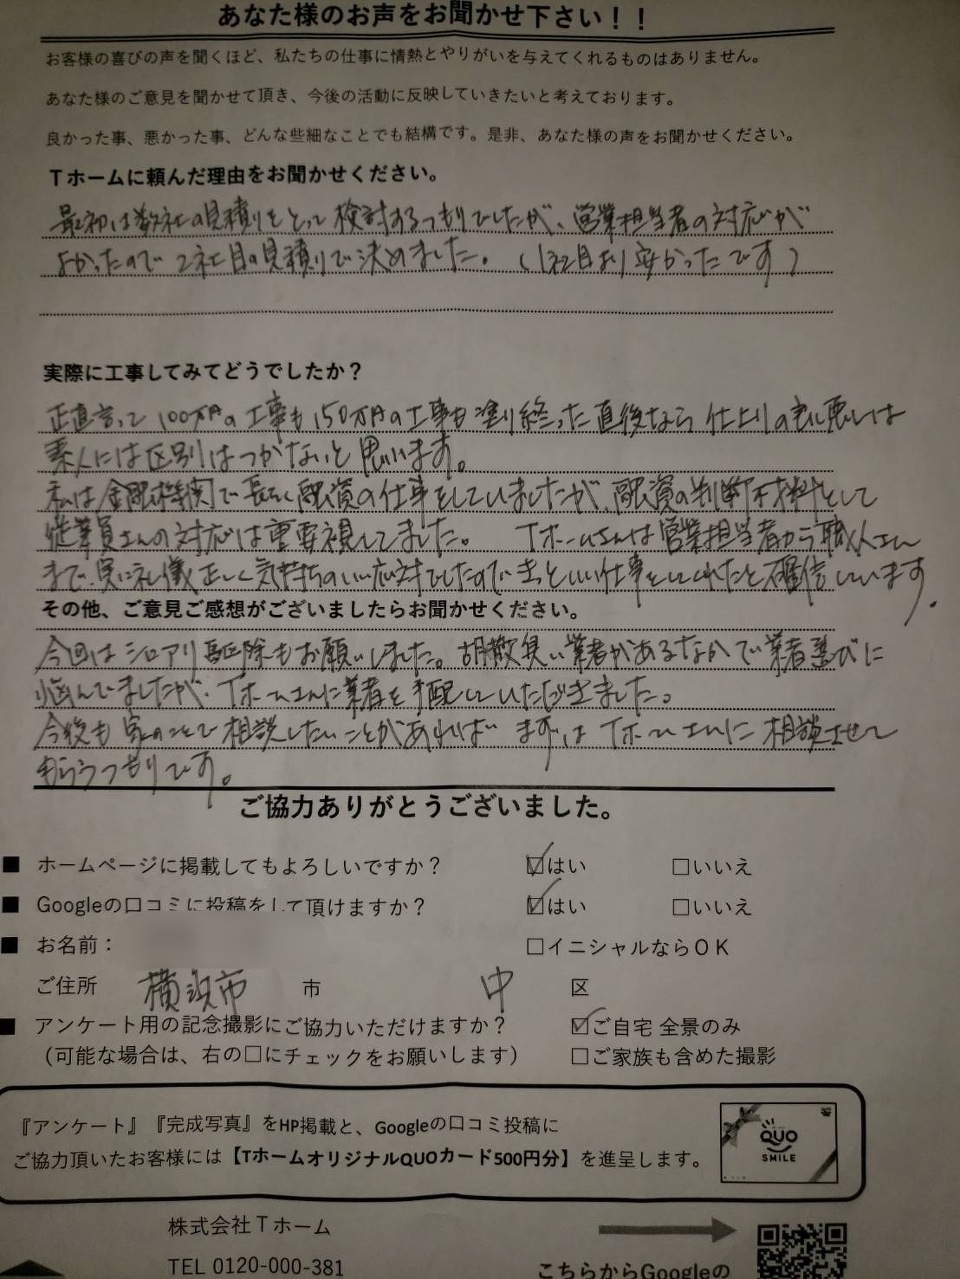 あなた様のお声をお聞かせ下さい！！
お客様の喜びの声を聞くほど、私たちの仕事に情熱とやりがいを与えてくれるものはありません。
あなた様のご意見を聞かせて頂き、今後の活動に反映していきたいと考えております。
良かった事、悪かった事、どんな些細なことでも結構です。是非、あなた様の声をお聞かせください。
Ｔホームに頼んだ理由をお聞かせください。
最初は数社の見積りをとって検討するつもりでしたが、営業担当者の対応が
よかったので２社目の見積りで決めました。（1社目より安かったです）
実際に工事してみてどうでしたか？
正直言って100万円の工事も150万円の工事も塗り終った直後なら仕上りの良し悪しは
素人には区別はつかないと思います。
私は金融機関で長らく融資の仕事をしていましたが、融資の判断材料として
従業員さんの対応は重要視してました。Ｔホームさんは営業担当者から職人さん
まで、実に礼儀正しく気持ちのいい応対でしたのできっといい仕事をしてくれたと確信しています。
その他、ご意見ご感想がございましたらお聞かせください。
今回はシロアリ駆除もお願いしました。胡散臭い業者があるなかで業者選びに
悩んでましたが、Ｔホームさんに業者を手配していただきました。
今後も家のことで相談したいことがあればまずはＴホームさんに相談させて
もらうつもりです。
ご協力ありがとうございました。
■ ホームページに掲載してもよろしいですか？ ☑はい □いいえ
■ Googleの口コミに投稿をして頂けますか？ ☑はい □いいえ
■ お名前： □イニシャルならＯＫ
ご住所 横浜市 市 中 区
■ アンケート用の記念撮影にご協力いただけますか？ ☑ご自宅 全景のみ
（可能な場合は、右の□にチェックをお願いします） □ご家族も含めた撮影
『アンケート』『完成写真』をHP掲載と、Googleの口コミ投稿に
ご協力頂いたお客様には【TホームオリジナルQUOカード500円分】を進呈します。
QUO
SMILE
株式会社Ｔホーム
TEL 0120-000-381
こちらからGoogleの